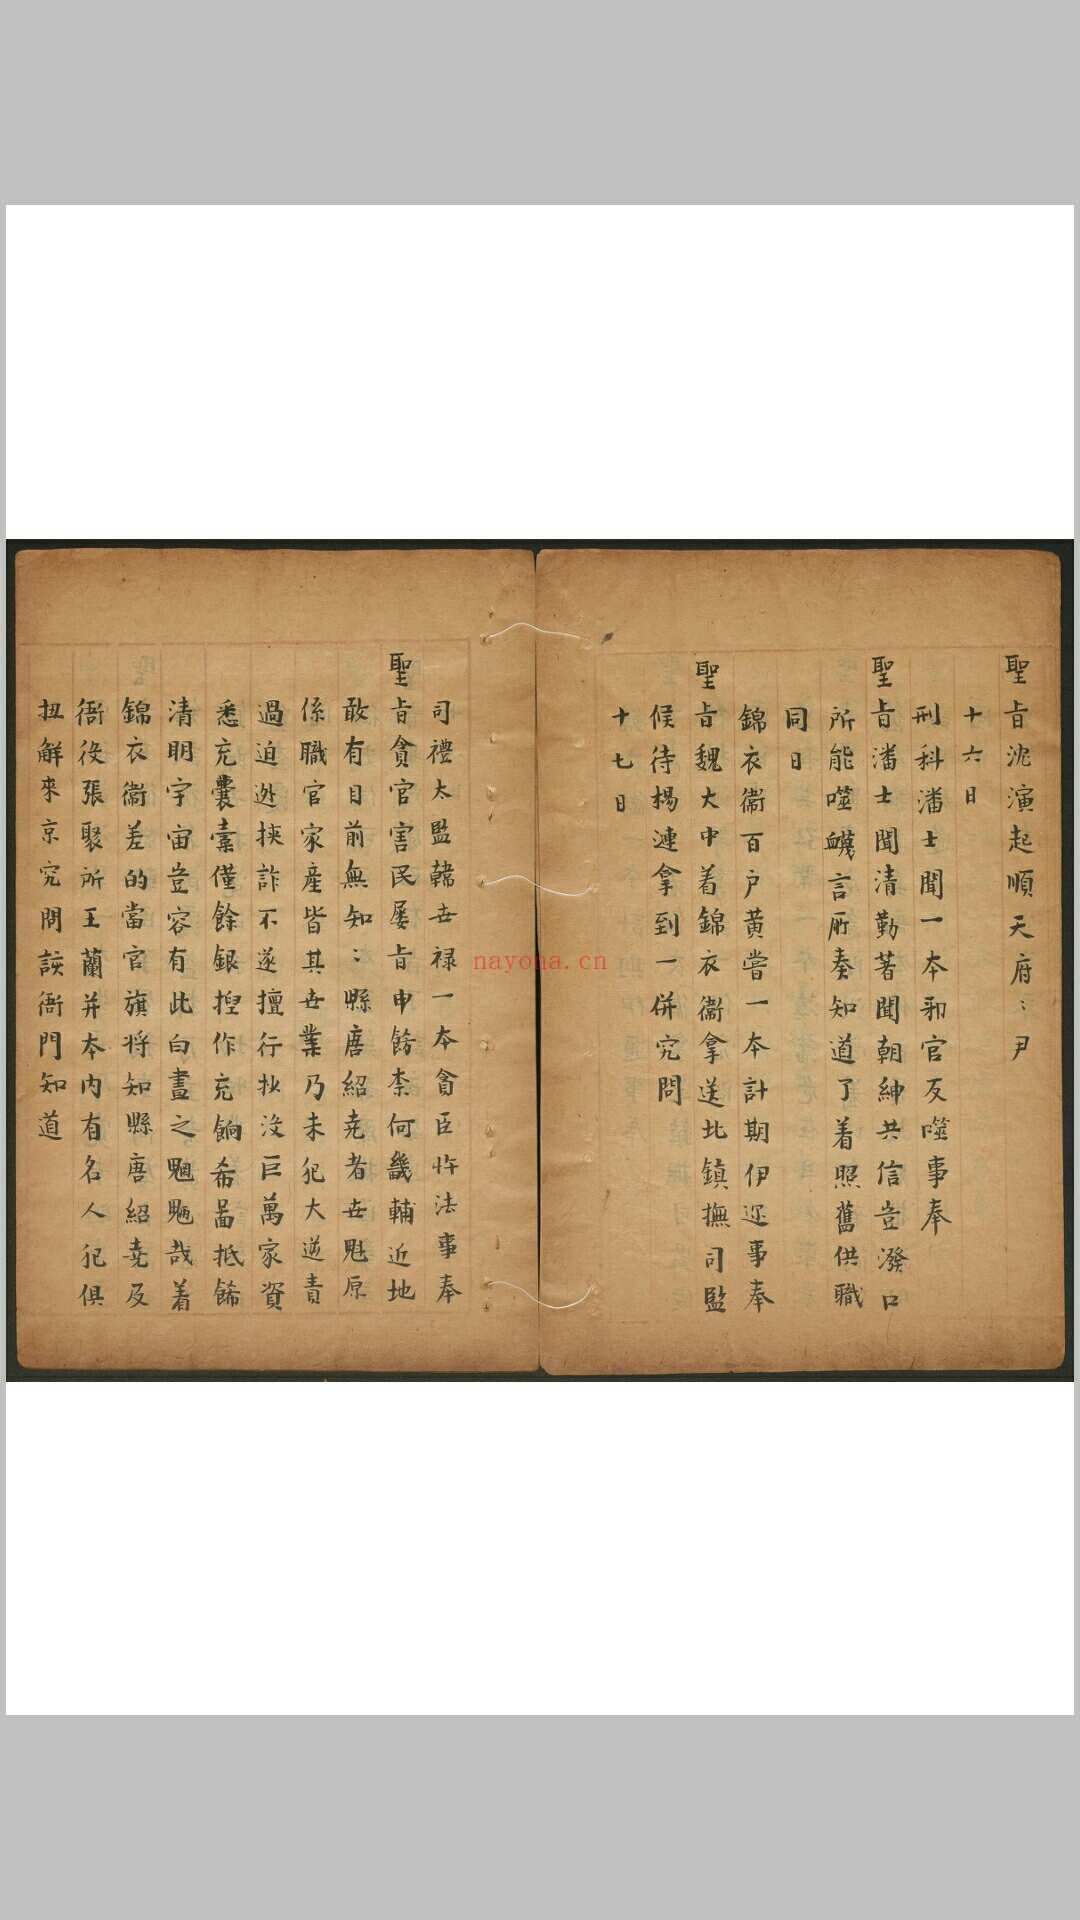 聖旨沈演起順天府〻尹
十六日
刑科潘士聞一本邪官反噬事奉
聖旨潘士聞清勤著聞朝紳共信豈潑口
所能噬衊言所奏知道了着照舊供職
同日
錦衣衞百户黄嘗一本計期伊邇事奉
聖旨魏大中着錦衣衞拿送北鎮撫司監
候待楊漣拿到一併究問
十七日
司禮太監韓世禄一本貪臣忤法事奉
聖旨貪官害民屡旨申飭柰何畿輔近地
敢有目前無知〻縣唐紹堯者世魁原
係職官家產皆其世業乃未犯大逆責
過迫逊挾詐不遂擅行抄沒巨萬家資
悉充囊橐僅餘銀揑作充餉希啚抵餙
清明宇宙豈容有此白晝之魍魎哉着
錦衣衞差的當官旗将知縣唐紹堯及
衙役張聚所王蘭并本内有名人犯俱
扭解來京究問該衙門知道
nayona.cn